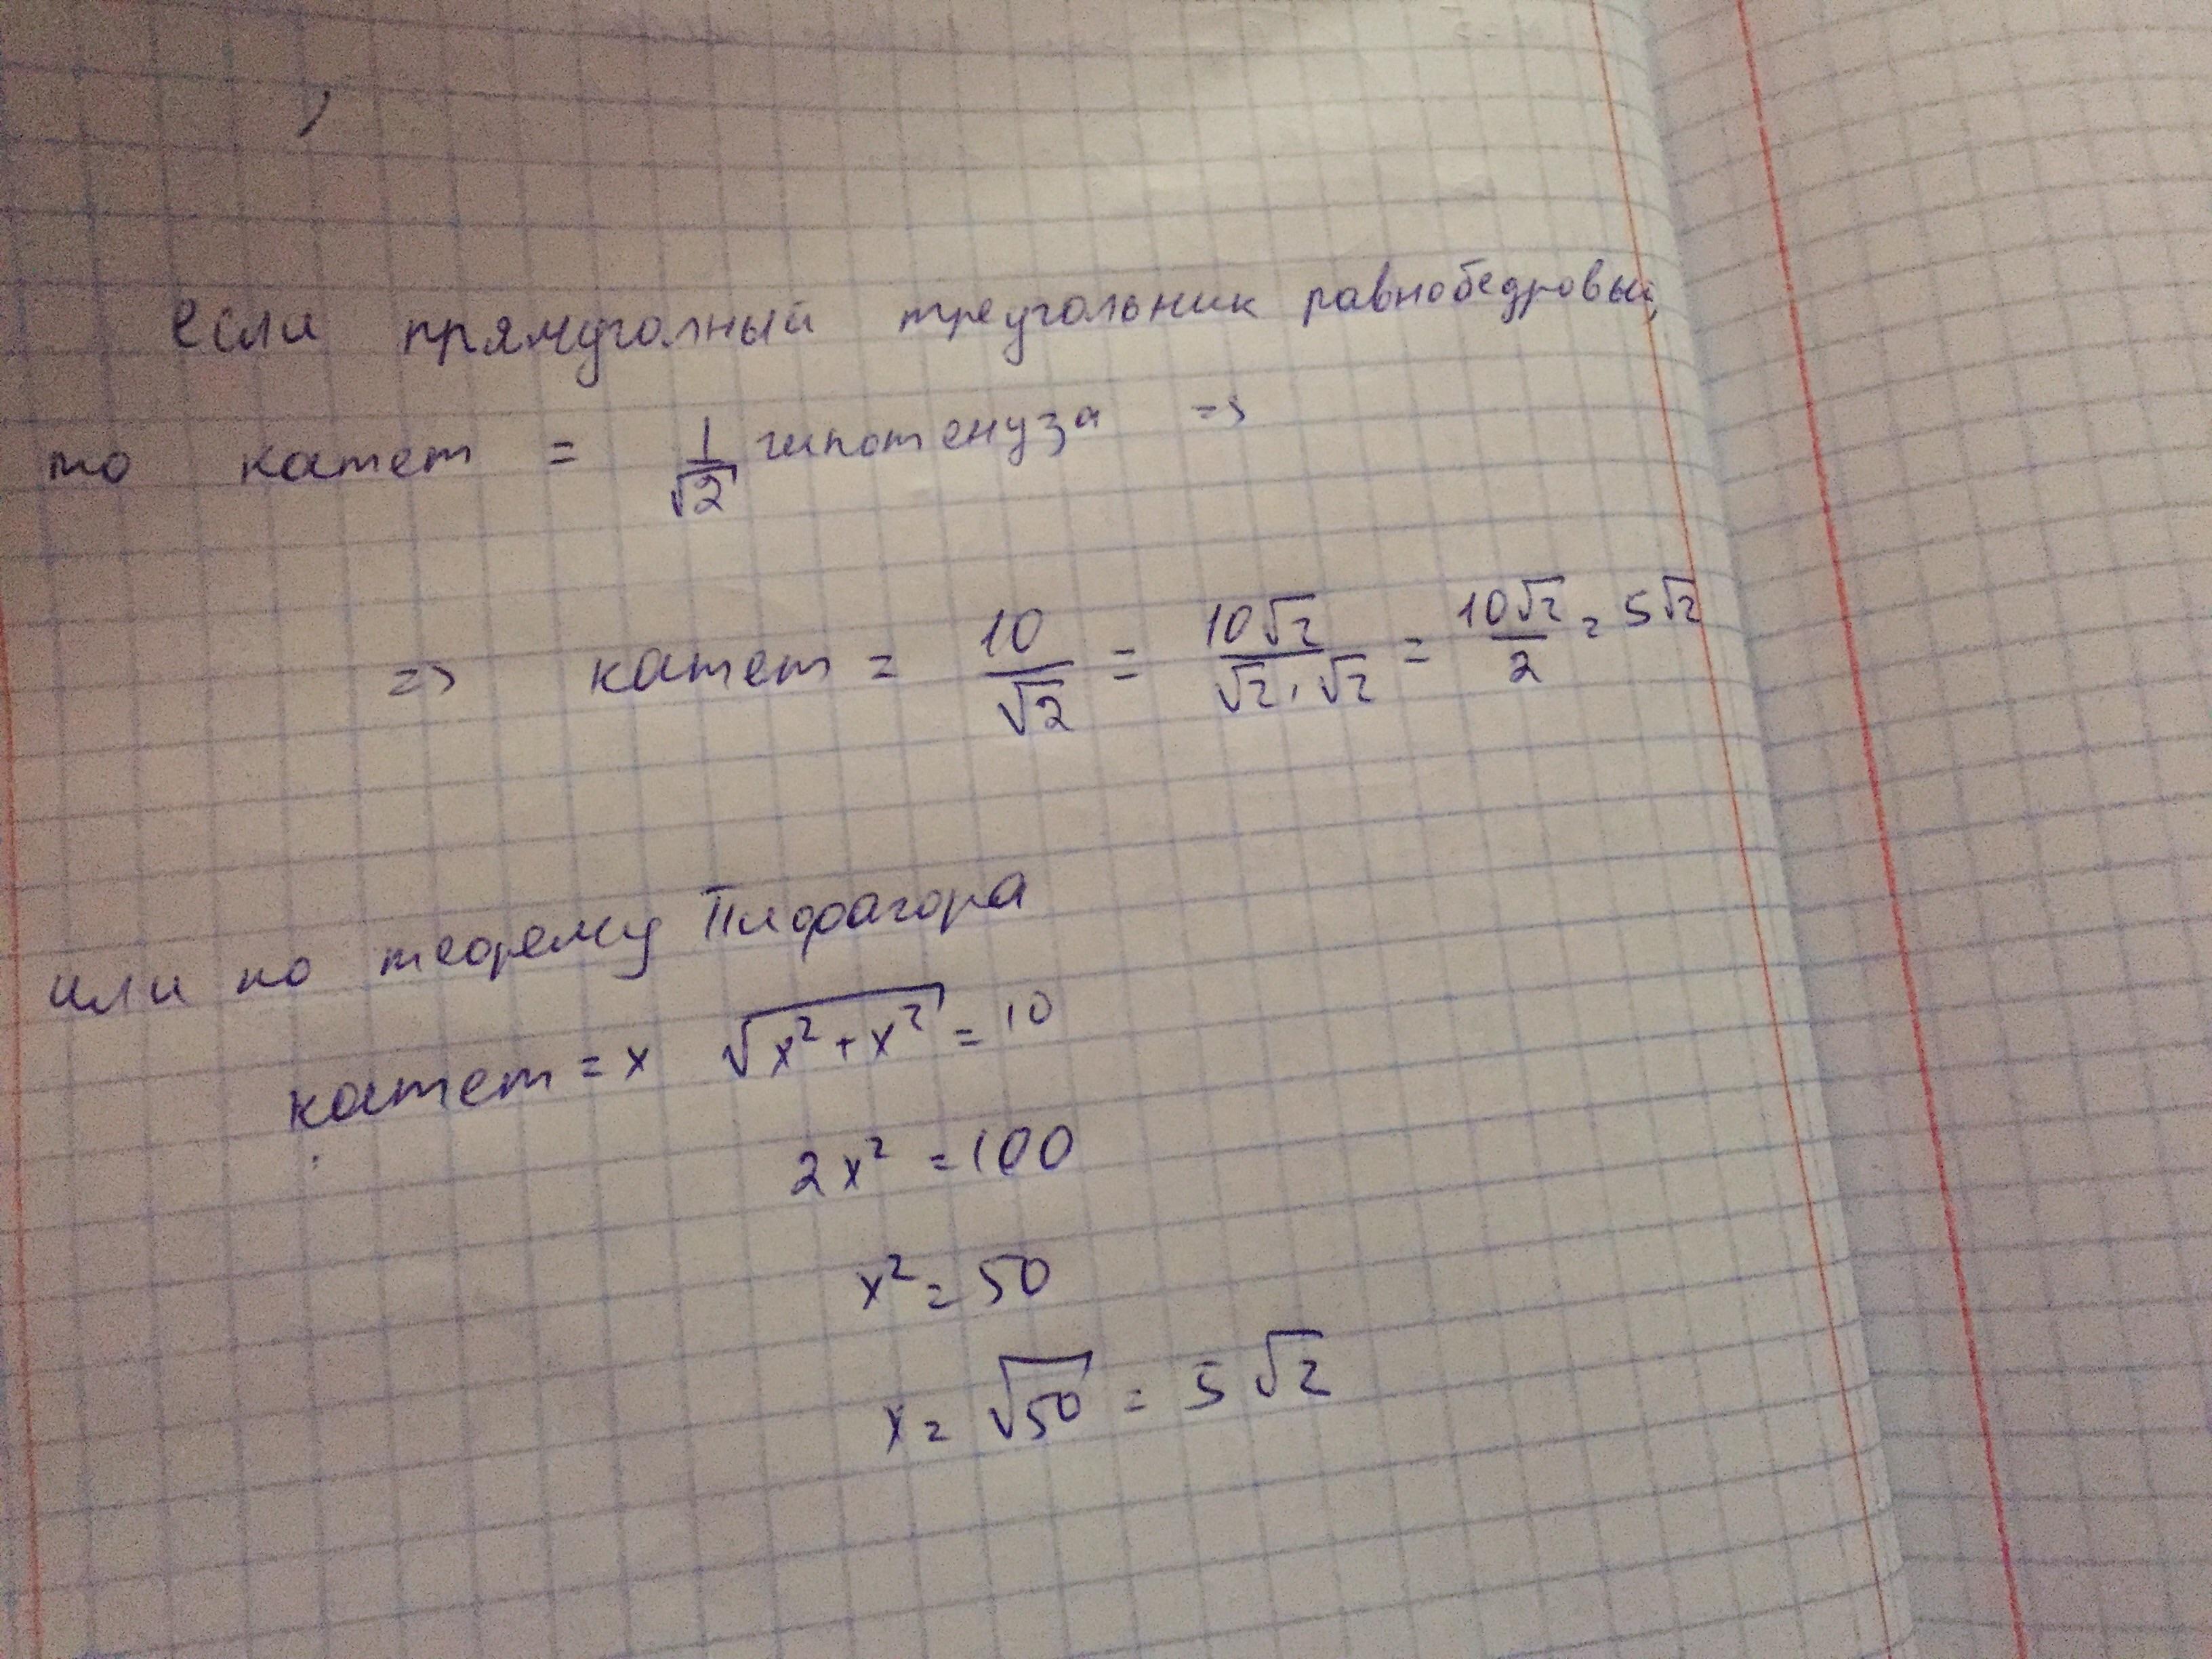 если прямуголный треугольник равнобедровый,
то катет = 1/√2 гипотенуза =>
=> катет = 10/√2 = 10√2/√2·√2 = 10√2/2 = 5√2
или по теорему Пифагора
катет = x √x²+x² = 10
2x² = 100
x² = 50
x = √50 = 5√2